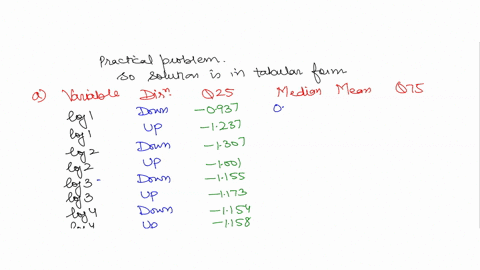 Practical problem.
So solution is in tabular form
a) Variable Dirⁿ Q25 Median Mean Q75
log 1 Down -0.937 0.
log 1 Up -1.237
log 2 Down -1.307
log 2 Up -1.001
log 3 Down -1.155
log 3 Up -1.173
log 4 Down -1.154
log 4 Up -1.158